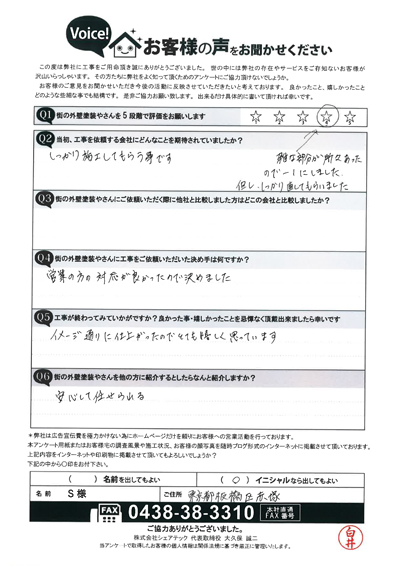 Voice! お客様の声をお聞かせください
この度は弊社に工事をご用命頂き誠にありがとうございました。世の中には弊社の存在やサービスをご存知ないお客様が
沢山いらっしゃいます。その方たちに弊社をよく知って頂くためのアンケートにご協力頂けないでしょうか。
お客様のご意見をお聞かせいただき今後の活動に反映させていただきたいと考えております。良かったこと、嬉しかったこと
どのような些細な事でも結構です。是非ご協力お願い致します。出来るだけ具体的に書いて頂ければ幸いです。
Q1 街の外壁塗装やさんを5段階で評価をお願いします
Q2 当初、工事を依頼する会社にどんなことを期待されていましたか?
しっかり施工してもらう事です
雑な部分が所々あった
ので-1にしました。
但し、しっかり直してもらいました
Q3 街の外壁塗装やさんにご依頼いただく際に他社と比較しました方はどこの会社と比較しましたか?
Q4 街の外壁塗装やさんに工事をご依頼いただいた決め手は何ですか?
営業の方の対応が良かったので決めました
Q5 工事が終わってみていかがですか?良かった事・嬉しかったことを忌憚なく頂戴出来ましたら幸いです
イメージ通りに仕上がったのでとても嬉しく思っています
Q6 街の外壁塗装やさんを他の方に紹介するとしたらなんと紹介しますか?
安心して任せられる
*弊社は広告宣伝費を極力かけない為にホームページだけを頼りにお客様への営業活動を行っております。
本アンケート用紙またはお客様宅の調査風景や施工状況、お客様の顔写真を随時ブログ形式のインターネットに掲載させて頂いております。
上記内容をインターネットや印刷物に掲載させて頂いてもよろしいでしょうか?
下記の中から○印をお付下さい。
( ) 名前を出してもよい ( ○ ) イニシャルなら出してもよい
名前 S様 ご住所 東京都板橋区
FAX 0438-38-3310 本社直通 FAX番号
ご協力ありがとうございました。
株式会社シェアテック 代表取締役 大久保 誠二
当アンケートで取得したお客様の個人情報は関係法様に基づき厳正に管理いたします。
白井